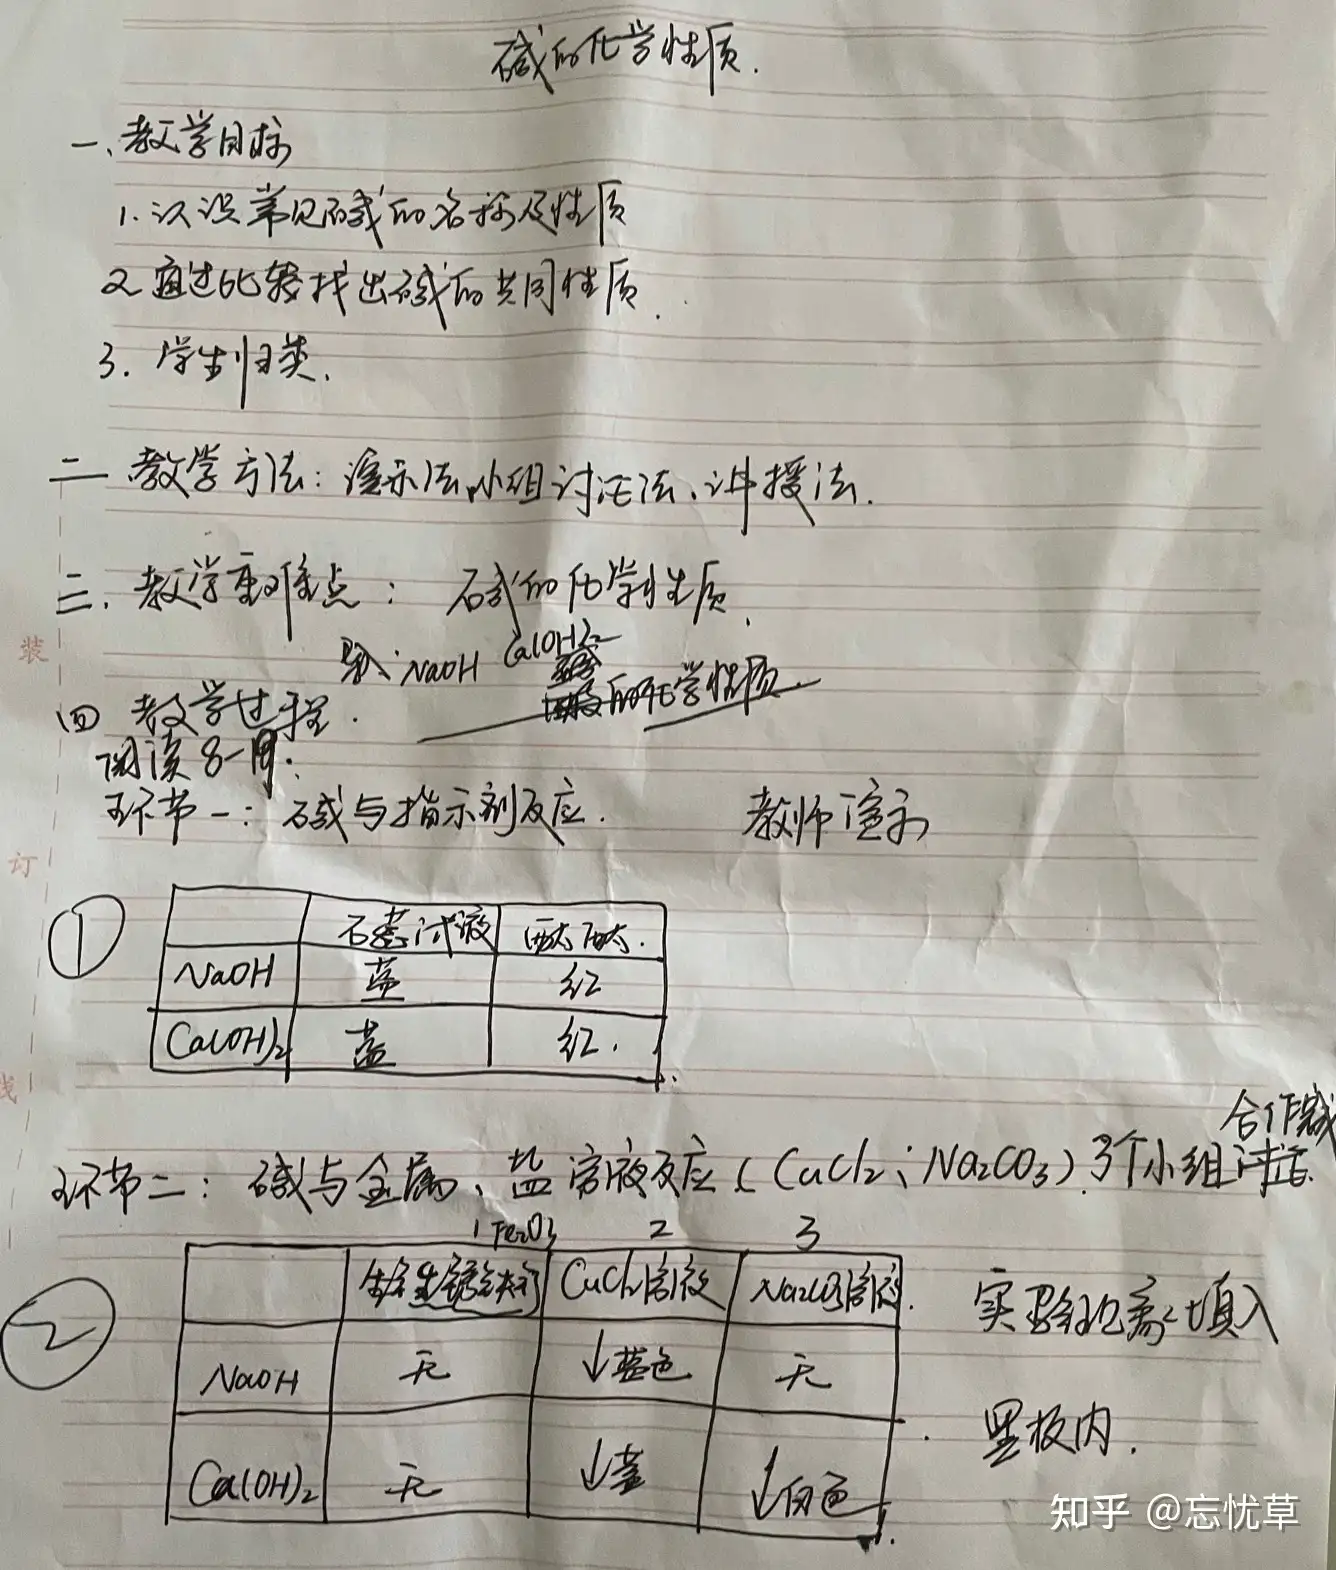 碱的化学性质.
一、教学目标
1. 认识常见碱的名称及性质
2 通过比较找出碱的共同性质.
3. 学生归类.
二 教学方法: 演示法,小组讨论法、讲授法.
三. 教学重难点: 碱的化学性质.
导入: NaOH Ca(OH)2
的化学性质
四 教学过程.
阅读8-
环节一: 碱与指示剂反应. 教师演示
①
石蕊试液 酚酞.
NaOH 蓝 红
Ca(OH)2 蓝 红.
合作
环节二: 碱与金属、盐溶液反应 (CuCl2; Na2CO3). 3个小组讨论.
1 Fe2O3 2 3
②
生锈 CuCl2溶液 Na2CO3溶液.
NaOH 无 ↓蓝色 无
Ca(OH)2 无 ↓蓝 ↓白色
实验现象填入
黑板内.
装
订
线
知乎 @忘忧草